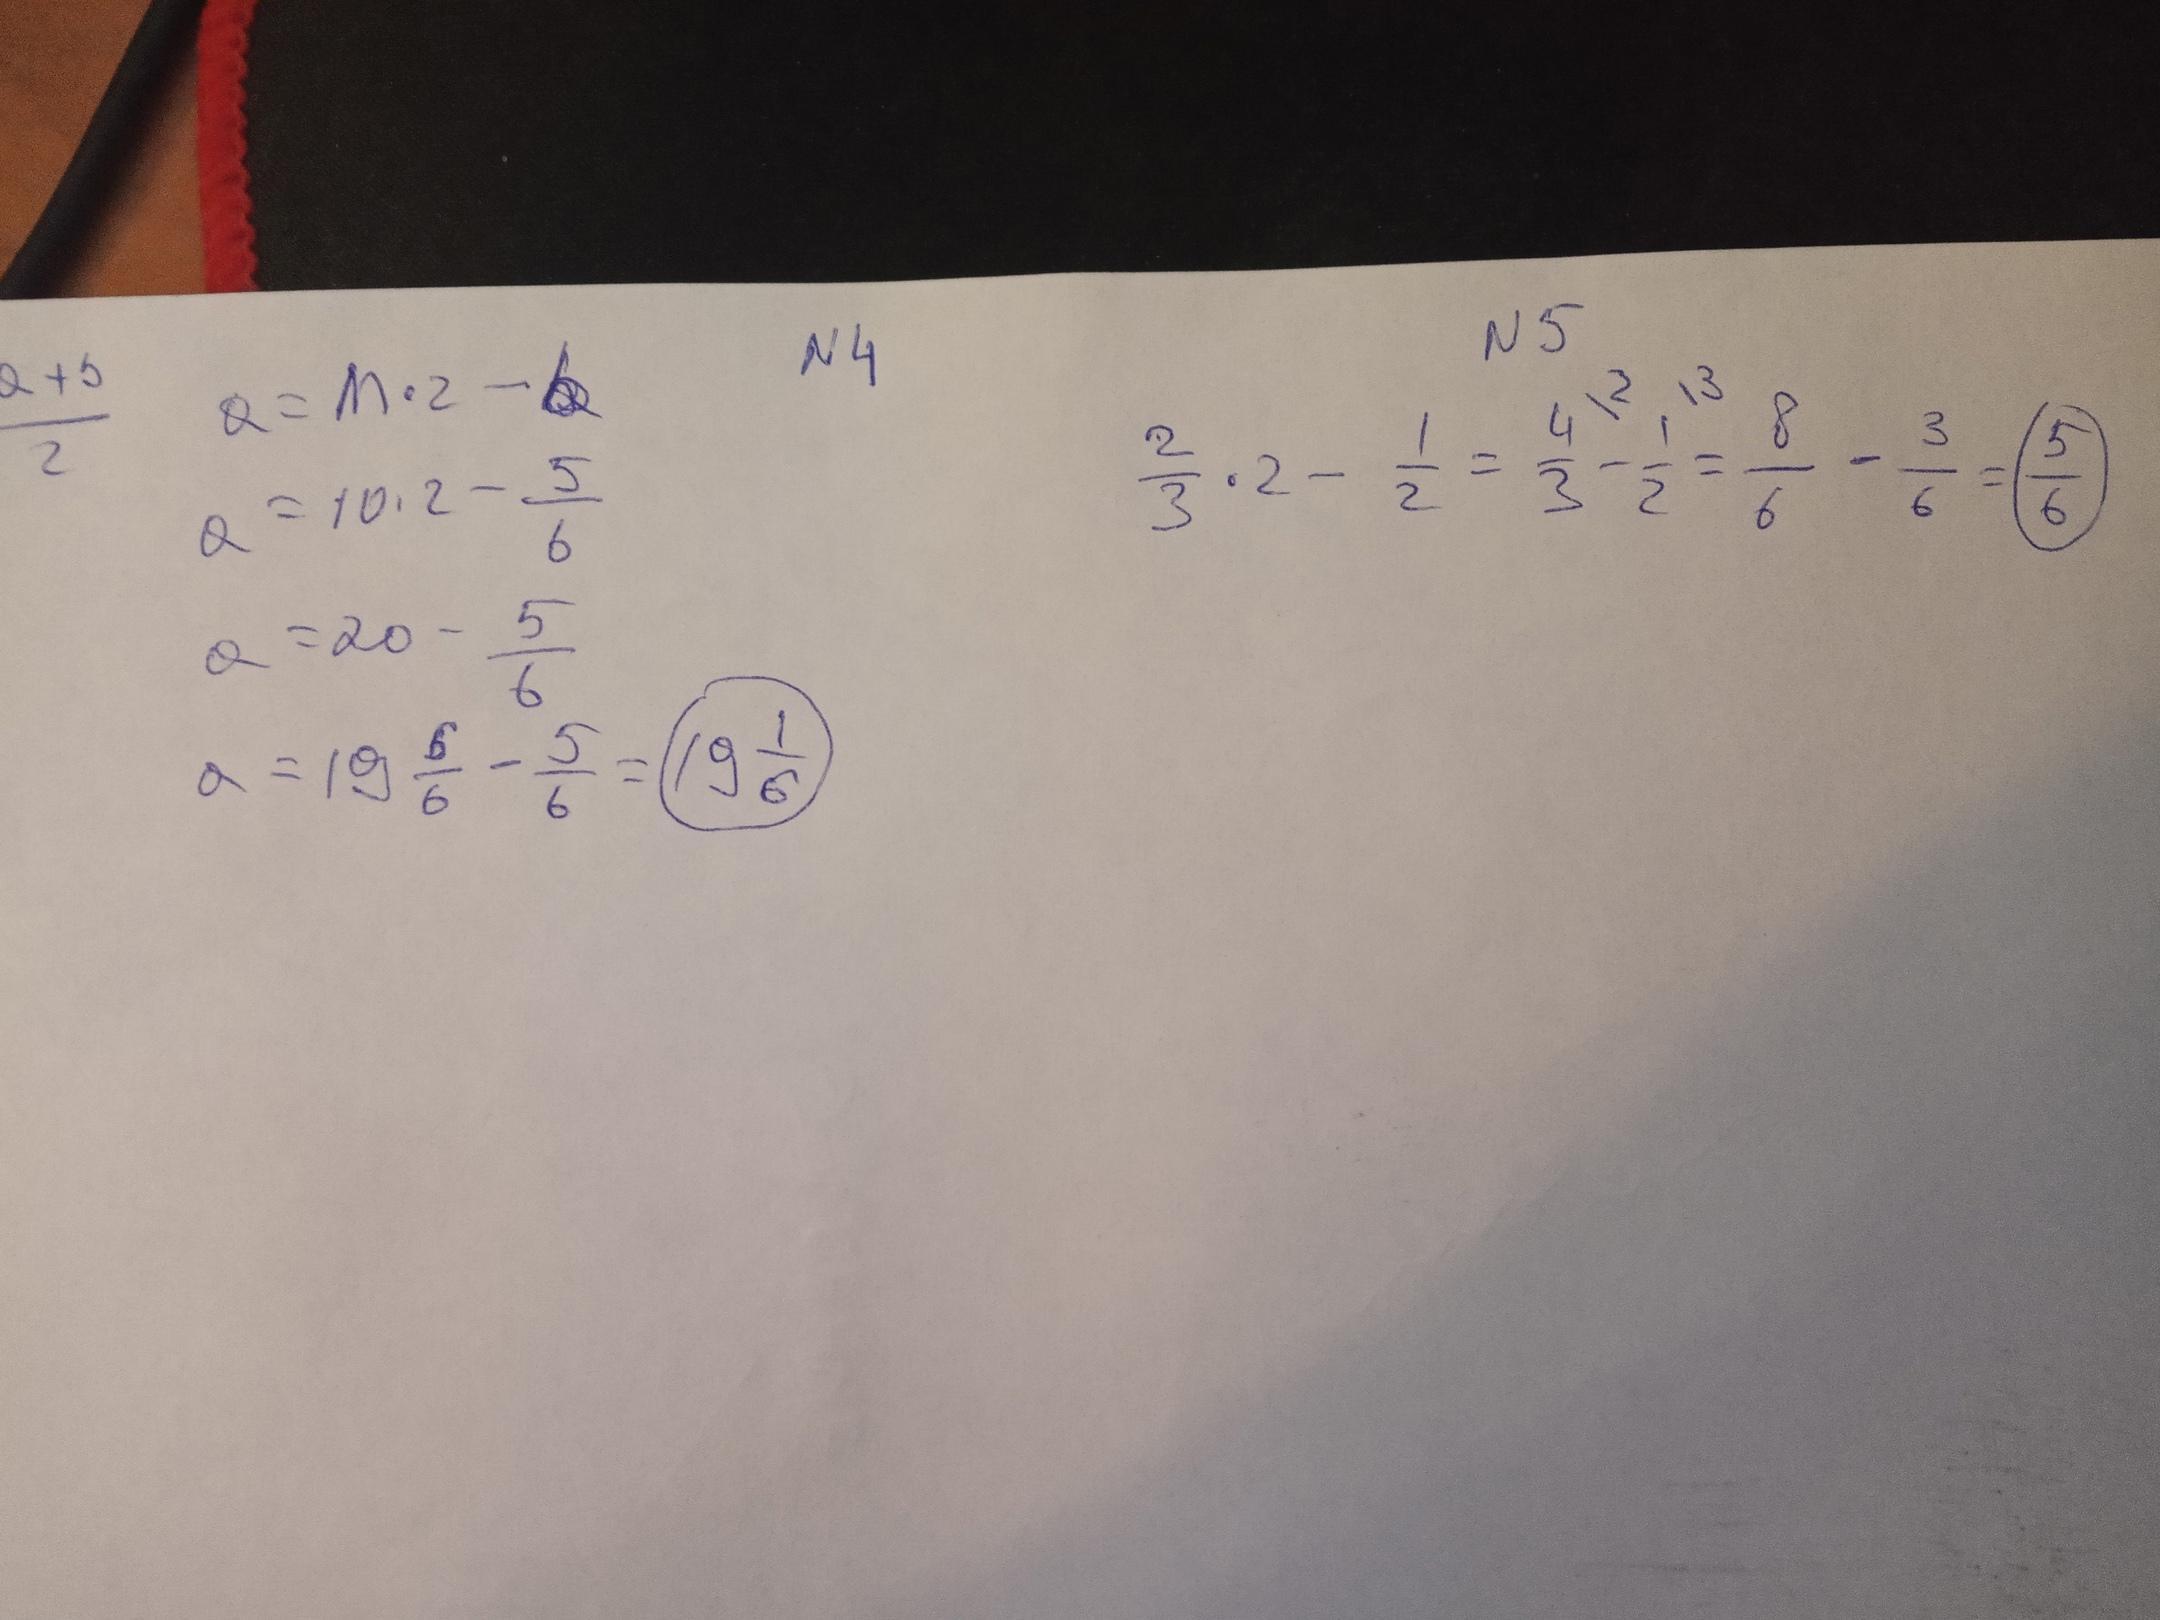 N4
a+b/2
a = m·2 - b
a = 10·2 - 5/6
a = 20 - 5/6
a = 19 6/6 - 5/6 = 19 1/6
N5
2/3 · 2 - 1/2 = 4/3 \2 - 1/2 \3 = 8/6 - 3/6 = 5/6